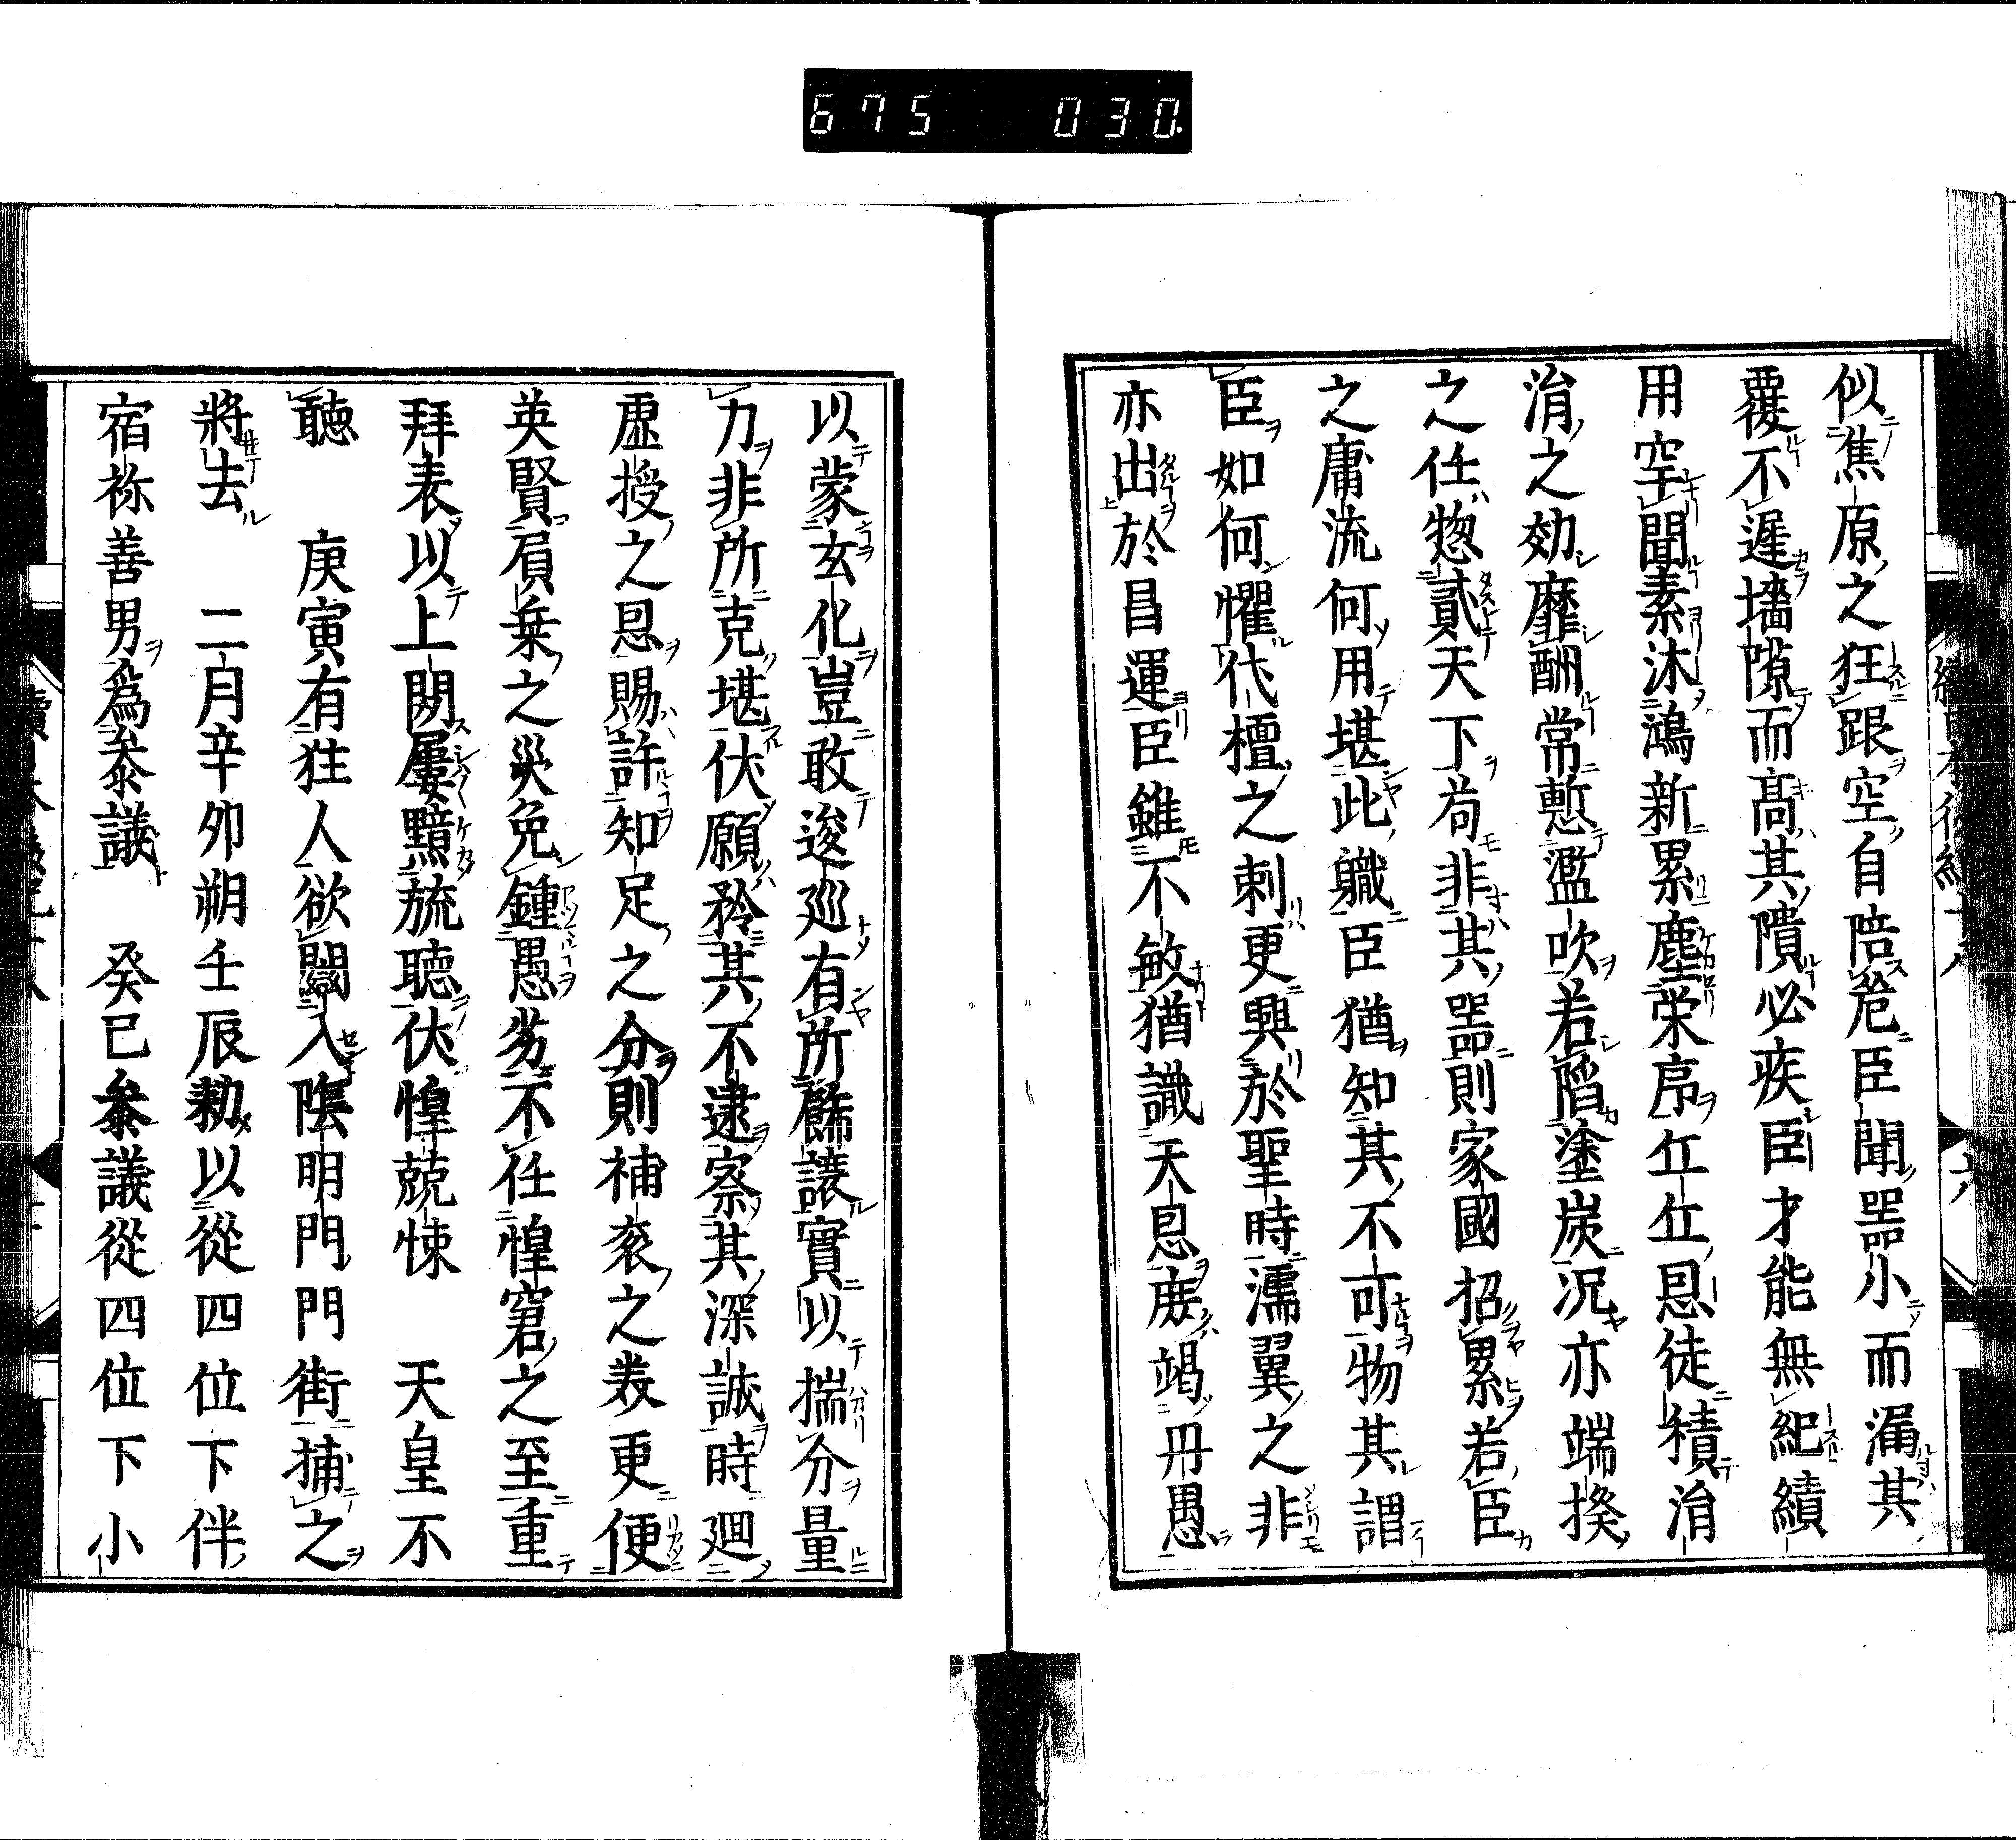 675 030
似焦原之狂跟空自陪卺臣聞器小而漏其
覆不遑墻隙而高其隤必疾臣才能無紀績
用空聞素沐鴻新累塵栄序丘丘恩徒積涓
涓之効靡酬常慙濫吹若陷塗炭況亦端揆
之任惣貳天下苟非其器則家國招累若臣
之庸流何用堪此職臣猶知其不可物其謂
臣如何懼伐檀之刺更興於聖時濡翼之非
亦出於昌運臣雖不敏猶識天恩庶竭丹愚
以蒙玄化豈敢逡巡有所餙讓實以揣分量
力非所克堪伏願矜其不逮察其深誠時廻
虛授之恩賜許知足之分則補衮之美更便
英賢屓乗之災免鍾愚劣不任惶窘之至重
拜表以上閼屢黯旒聴伏惶兢悚　天皇不
聴　庚寅有狂人欲闌入陰明門門街捕之
將去　二月辛夘朔壬辰勑以從四位下伴
宿祢善男爲叅議　癸巳叅議從四位下小